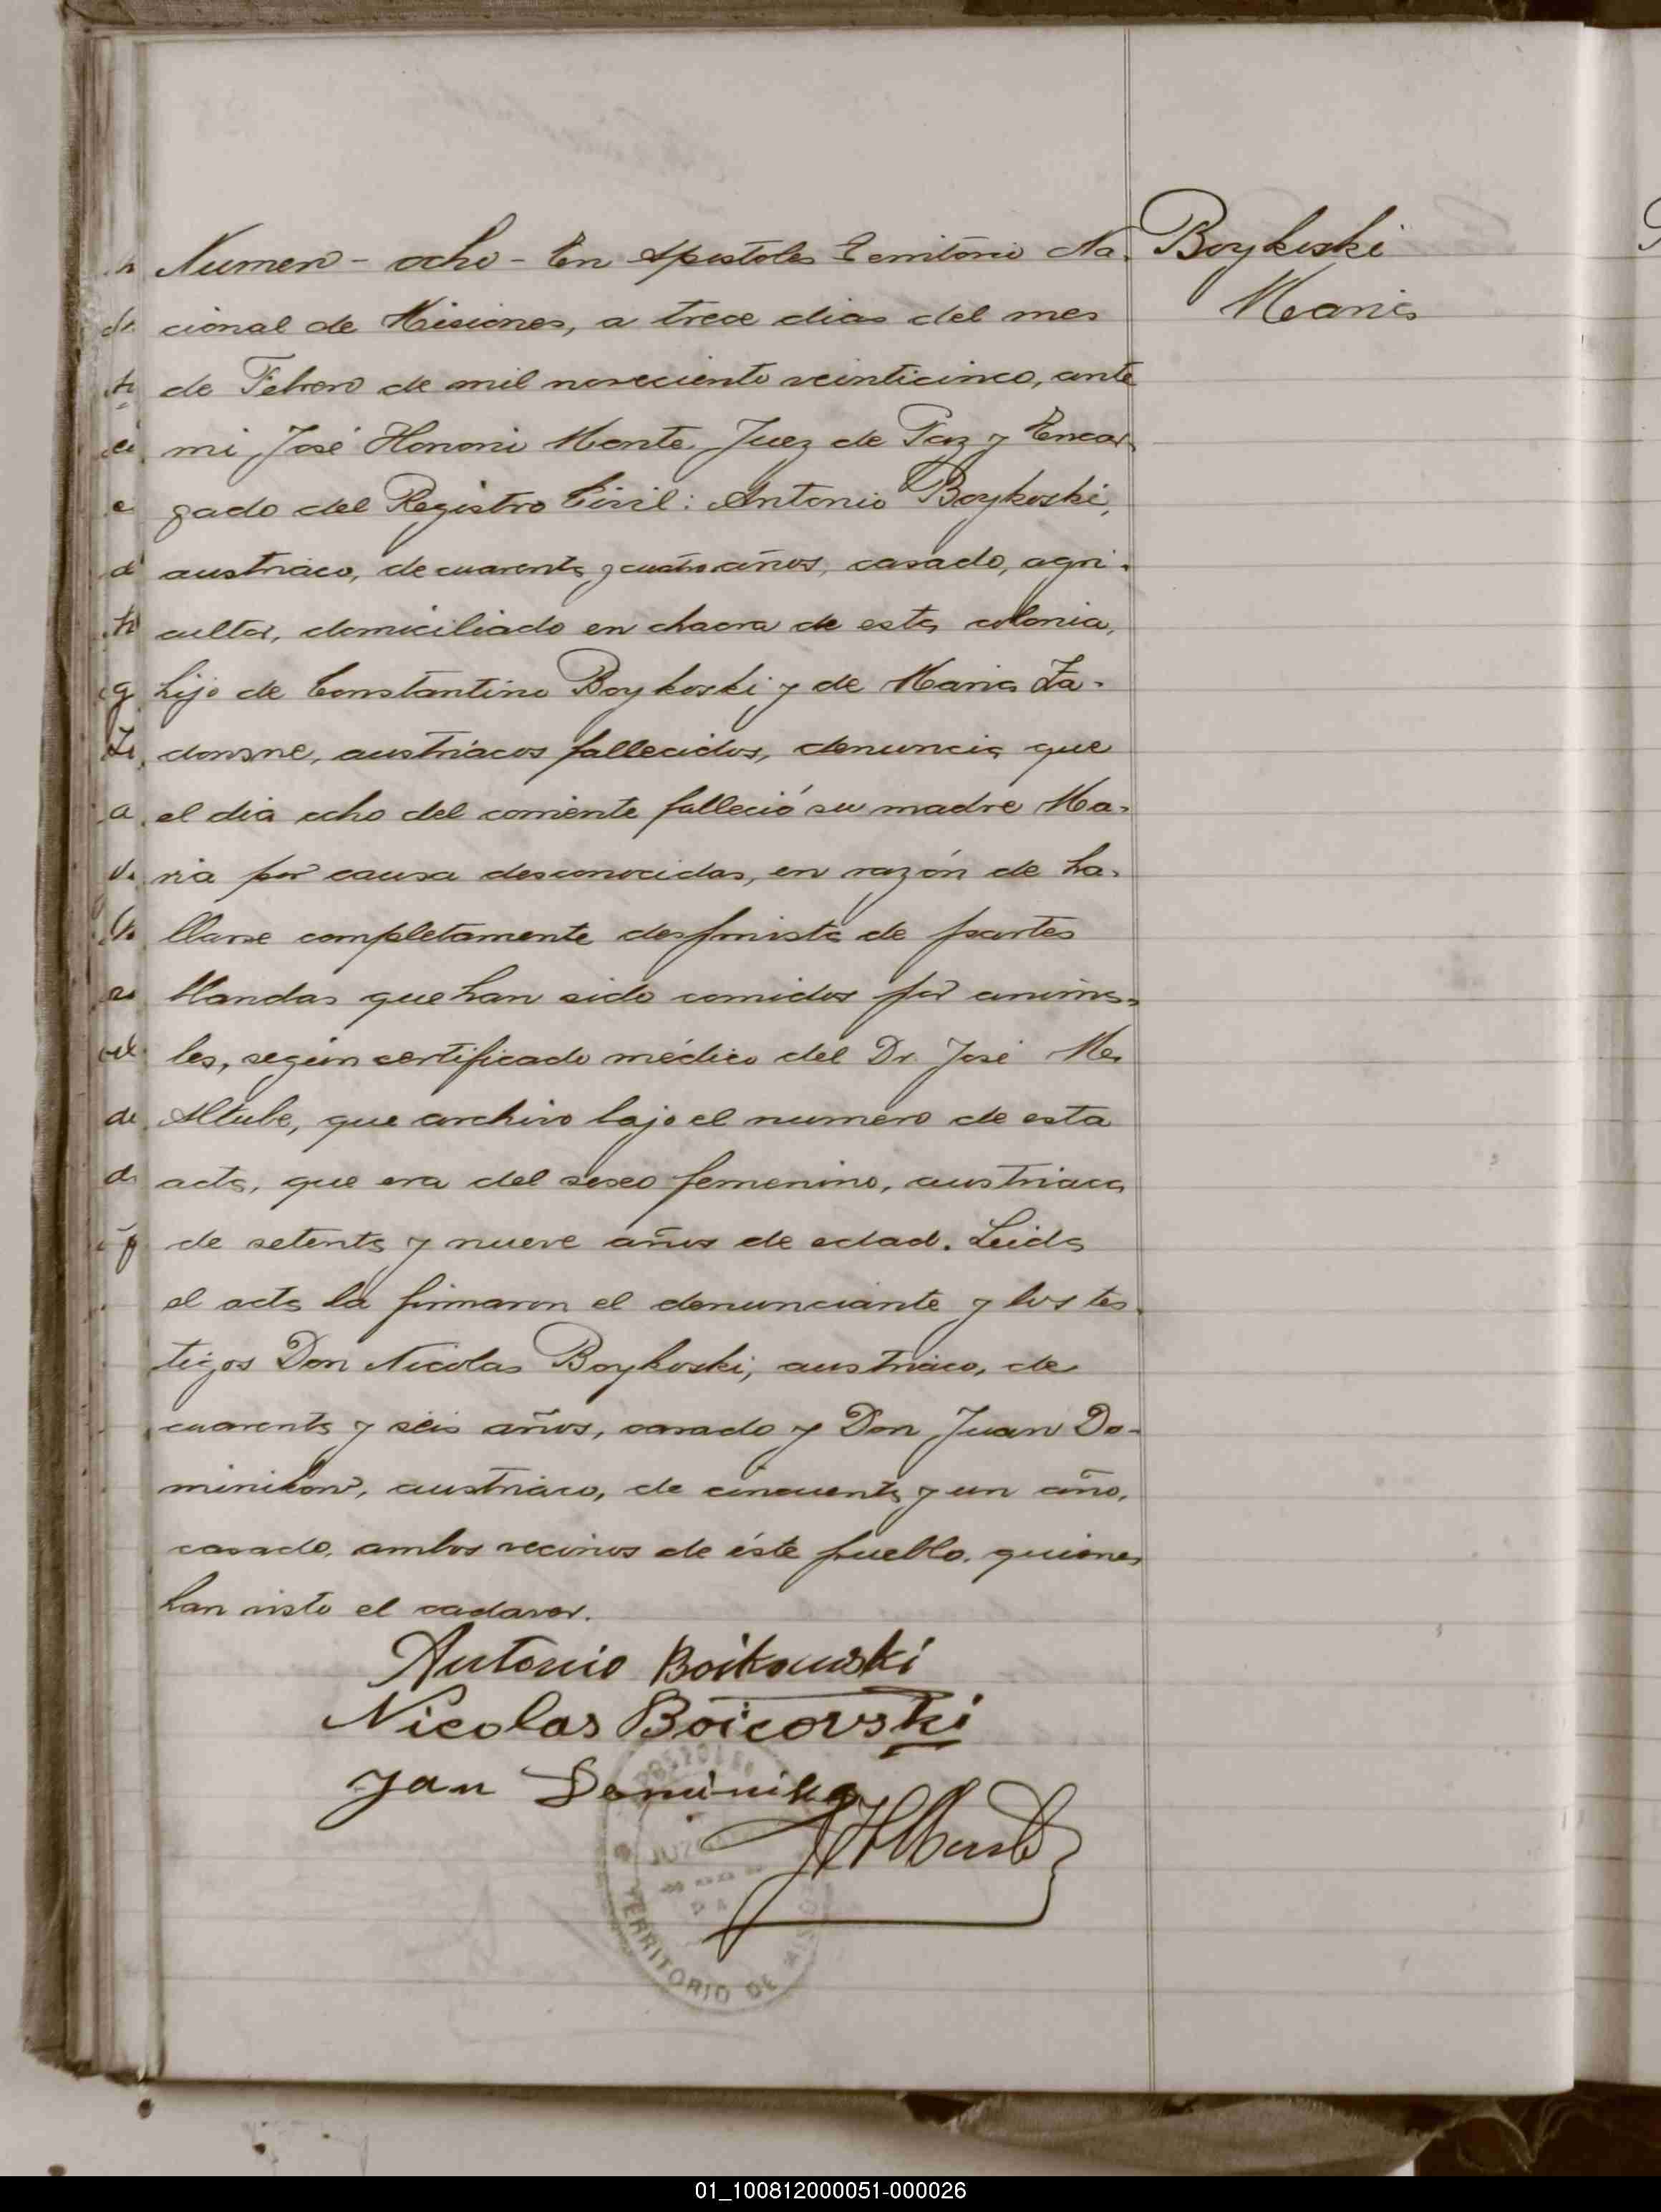 Numero - ocho - En Apostoles Territorio Na-
cional de Misiones, a trece dias del mes
de Febrero de mil noveciento veinticinco, ante
mi José Honorio Monte Juez de Paz y Encar
gado del Registro Civil: Antonio Boykoski,
austriaco, de cuarenta y cuatro años, casado, agri-
cultor, domiciliado en chacra de esta colonia,
hijo de Constantino Boykoski y de Maria Za-
donsne, austriacos fallecidos, denuncia que
el dia ocho del corriente falleció su madre Ma-
ria por causa desconocidas, en razón de ha-
llarse completamente desprovista de partes
blandas que han sido comidos por anima-
les, según certificado médico del Dr. José Ma
Altube, que archivo bajo el numero de esta
acta, que era del sexo femenino, austriaca
de setenta y nueve años de edad. Leida
el acta la firmaron el denunciante y los tes-
tigos Don Nicolas Boykoski, austriaco, de
cuarenta y séis años, casado y Don Juan Do-
minikow, austriaco, de cincuenta y un año,
casado, ambos vecinos de éste pueblo, quienes
han visto el cadaver.
Antonio Boikowski
Nicolas Boicovski
Jan Dominika
JHMonte
TERRITORIO DE
Boykoski
Maria
01_100812000051-000026